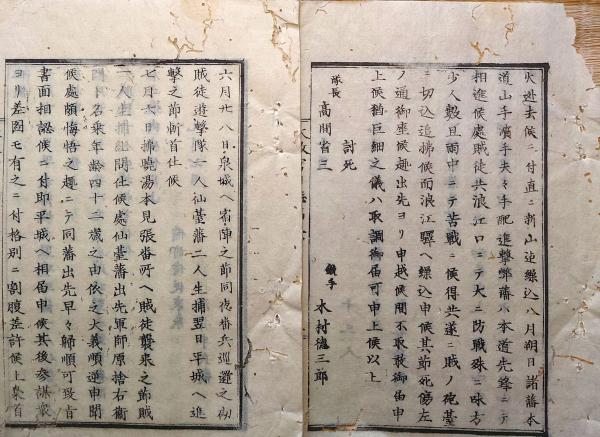 火逃去候ニ付直ニ新山迄繰込八月朔日諸藩本
道山手濱手夫々手配進撃弊藩ハ本道先鋒ニテ
相進候處賊徒共浪江口ニテ大ニ防戦殊ニ味方
少人數且雨中ニテ苦戦ニ候得共遂ニ賊ノ砲臺
ニ切込追拂候而浪江驛ヘ繰込申候其節死傷左
ノ通御座候趣出先ヨリ申越候間不取敢御届申
上候猶巨細之儀ハ取調御届可申上候以上
討死
隊長 高間省三
銃手 木村徳三郎
六月廿八日泉城ヘ宿陣之節同夜番兵巡邏之砌
賊徒遊撃隊六人仙臺藩二人生捕翌日平城ヘ進
撃之節斬首仕候
七月七日拂暁湯本見張番所ヘ賊徒襲来之節賊
一人生捕糺問仕候處仙臺藩出先軍師原捨右衛
門ト名乗年齢四十二歳之由依之大義順逆申聞
候處頗悔悟之趣ニテ同藩出先早々歸順可致旨
書面相認候ニ付即平城ヘ相届申候其後参謀衆
ヨリ差圖モ有之ニ付格別ニ割腹差許候上梟首